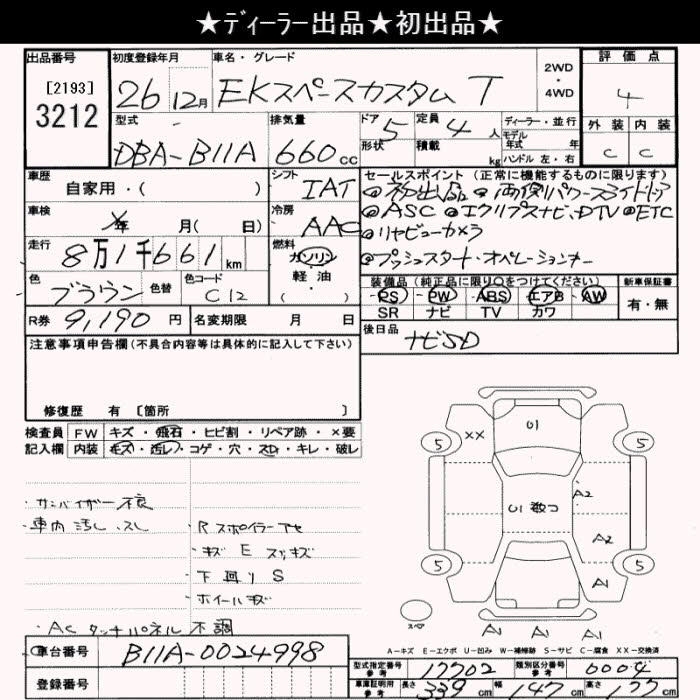 ★ディーラー出品★初出品★
出品番号
[2193]
3212
初度登録年月
26 12月
車名・グレード
EKスペースカスタム T
2WD
・
4WD
評価点
4
外装 内装
C C
型式
DBA-B11A
排気量
660 cc
ドア 5
形状
定員 4 人
積載 kg
ディーラー・並行
モデル
年式 年
ハンドル 左・右
車歴
自家用・( )
シフト
IAT
セールスポイント (正常に機能するものに限ります)
◎初出品 ◎両側パワースライドドア
◎ASC ◎エクリプスナビ、DTV ◎ETC
◎リヤビューカメラ
◎プッシュスタート・オペレーションキー
車検
年 月( 日)
冷房
AAC
走行
8万1千661 km
燃料
ガソリン
軽・油
( )
色
ブラウン
色替
色コード
C12
装備品 (純正品に限り○をつけてください)
PS PW ABS エアB AW
SR ナビ TV カワ
新車保証書
有・無
R券 9,190 円
名変期限 月 日
後日品
ナビSD
注意事項申告欄(不具合内容等は具体的に記入して下さい)
修復歴 有 [箇所 ]
検査員
記入欄
FW キズ・飛石・ヒビ割・リペア跡・×要
内装 キズ・汚レ・コゲ・穴・スレ・キレ・破レ
・サンバイザー不良
・車内汚し、スレ
・Rスポイラー
・キズ E スリキズ
・下回りS
・ホイールキズ
・ACタッチパネル不調
01
××
5
5
01 数コ
A2
A2
5
5
A1
スペ
A1
A1
A1
A-キズ E-エクボ U-凹み W-補修跡 S-サビ C-腐食 XX-交換済
車台番号 B11A-0024998
登録番号
型式指定番号
参考
17702
類別区分番号
参考
0004
車庫証明用
参考
長さ 339 cm
幅 147 cm
高さ 177 cm